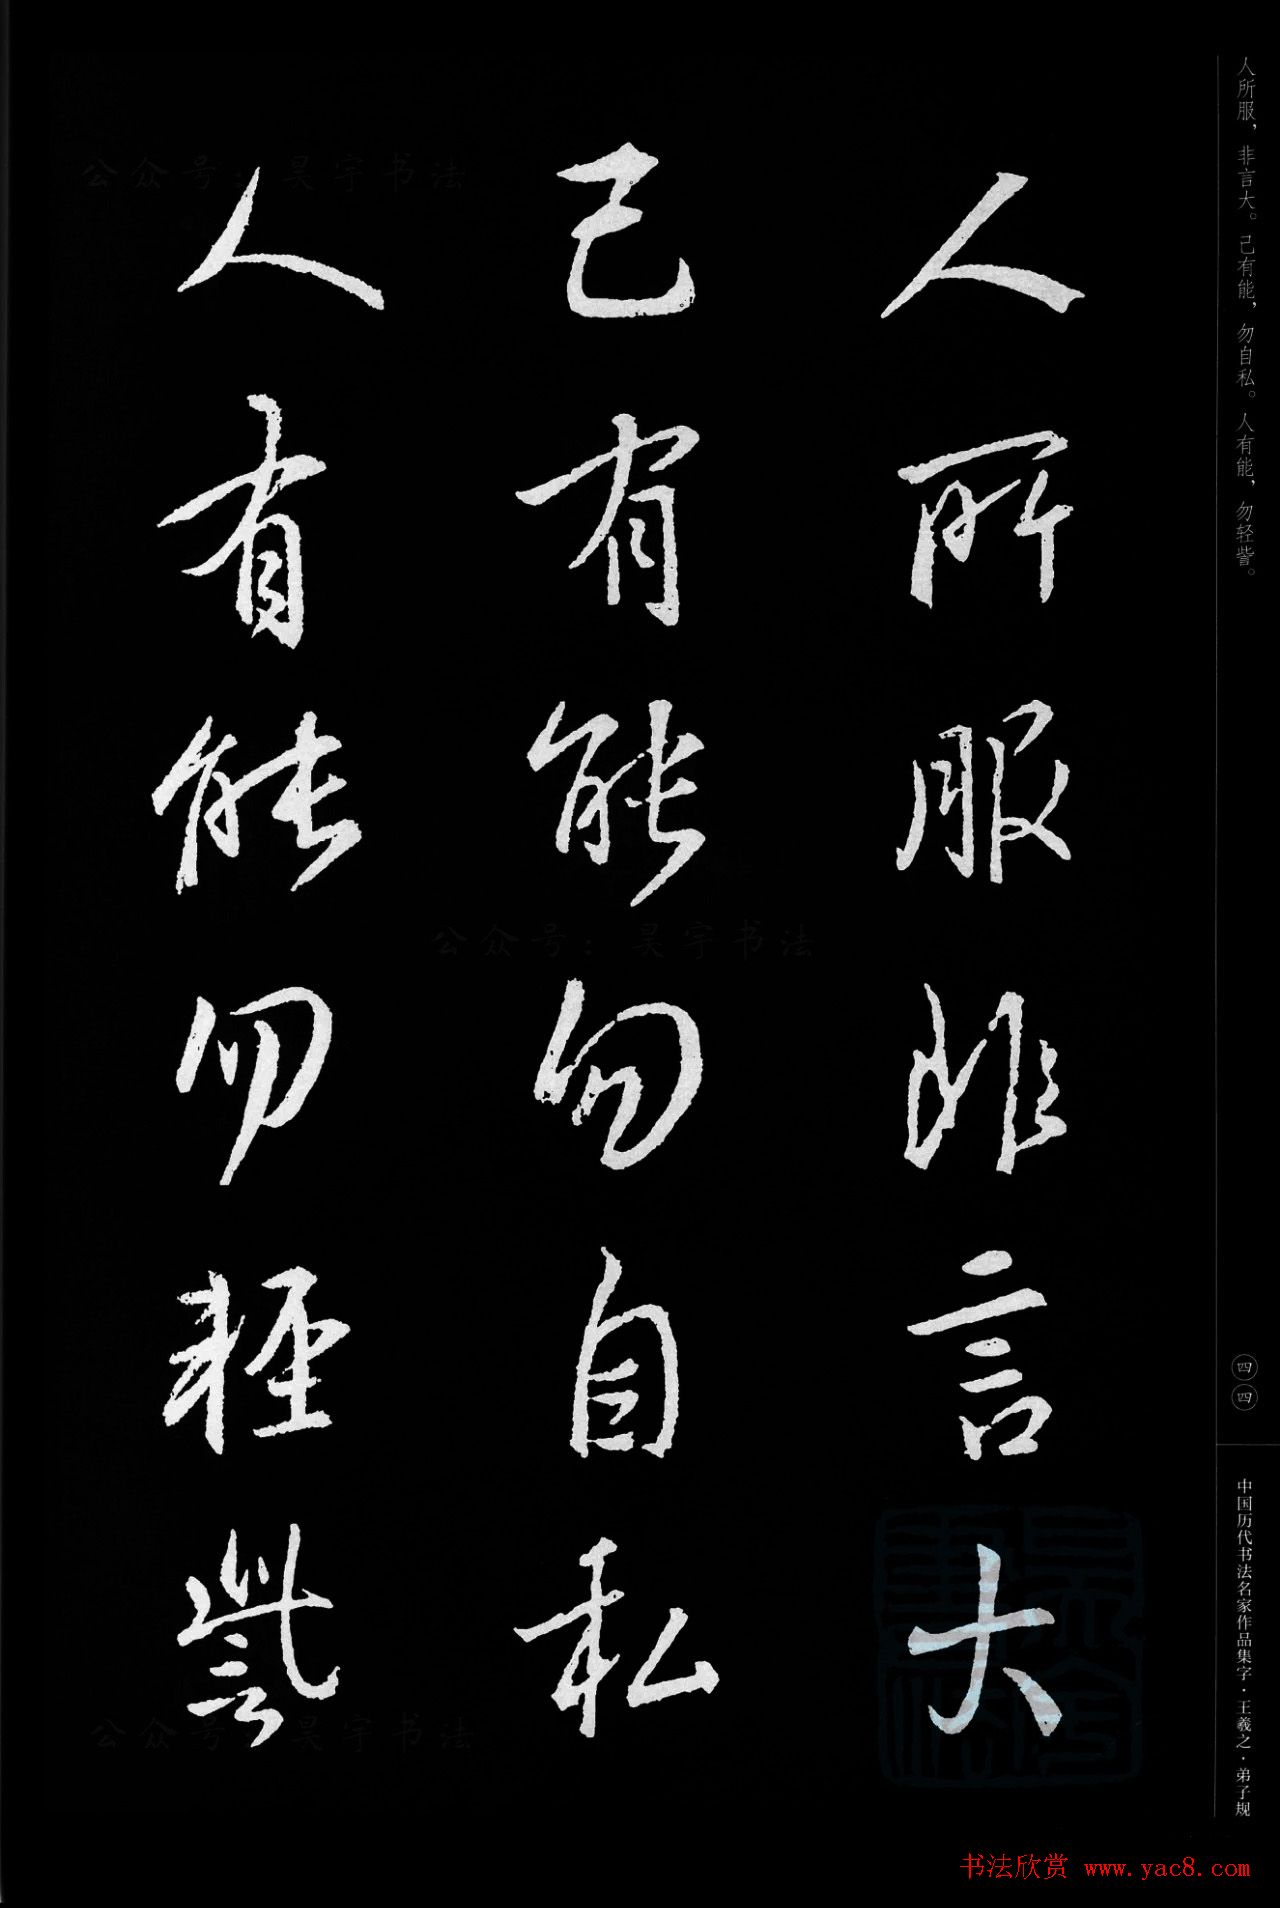 人所服，非言大。己有能，勿自私。人有能，勿轻訾。
人所服非言大
己有能勿自私
人有能勿輕訾
四四
中国历代书法名家作品集字·王羲之·弟子规
公众号：昊宇书法
公众号：昊宇书法
公众号：昊宇书法
书法欣赏 www.yac8.com